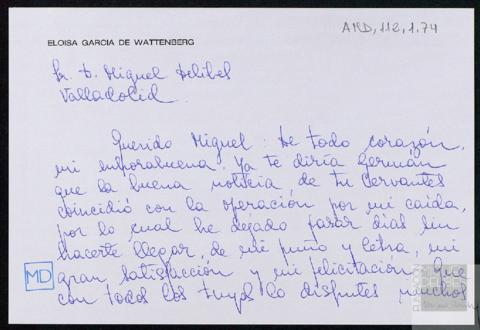 AMD, 112, 1.74
ELOISA GARCIA DE WATTENBERG
Sr. D. Miguel Delibes
Valladolid
Querido Miguel: De todo corazón,
mi enhorabuena. Ya te diría Germán
que la buena noticia, de tu Cervantes
coincidió con la operación por mi caida,
por lo cual he dejado pasar días sin
hacerte llegar, de mi puño y letra, mi
gran satisfacción y mi felicitación. Que
con todos los tuyos lo disfrutes muchos
MD
FUNDACIÓN